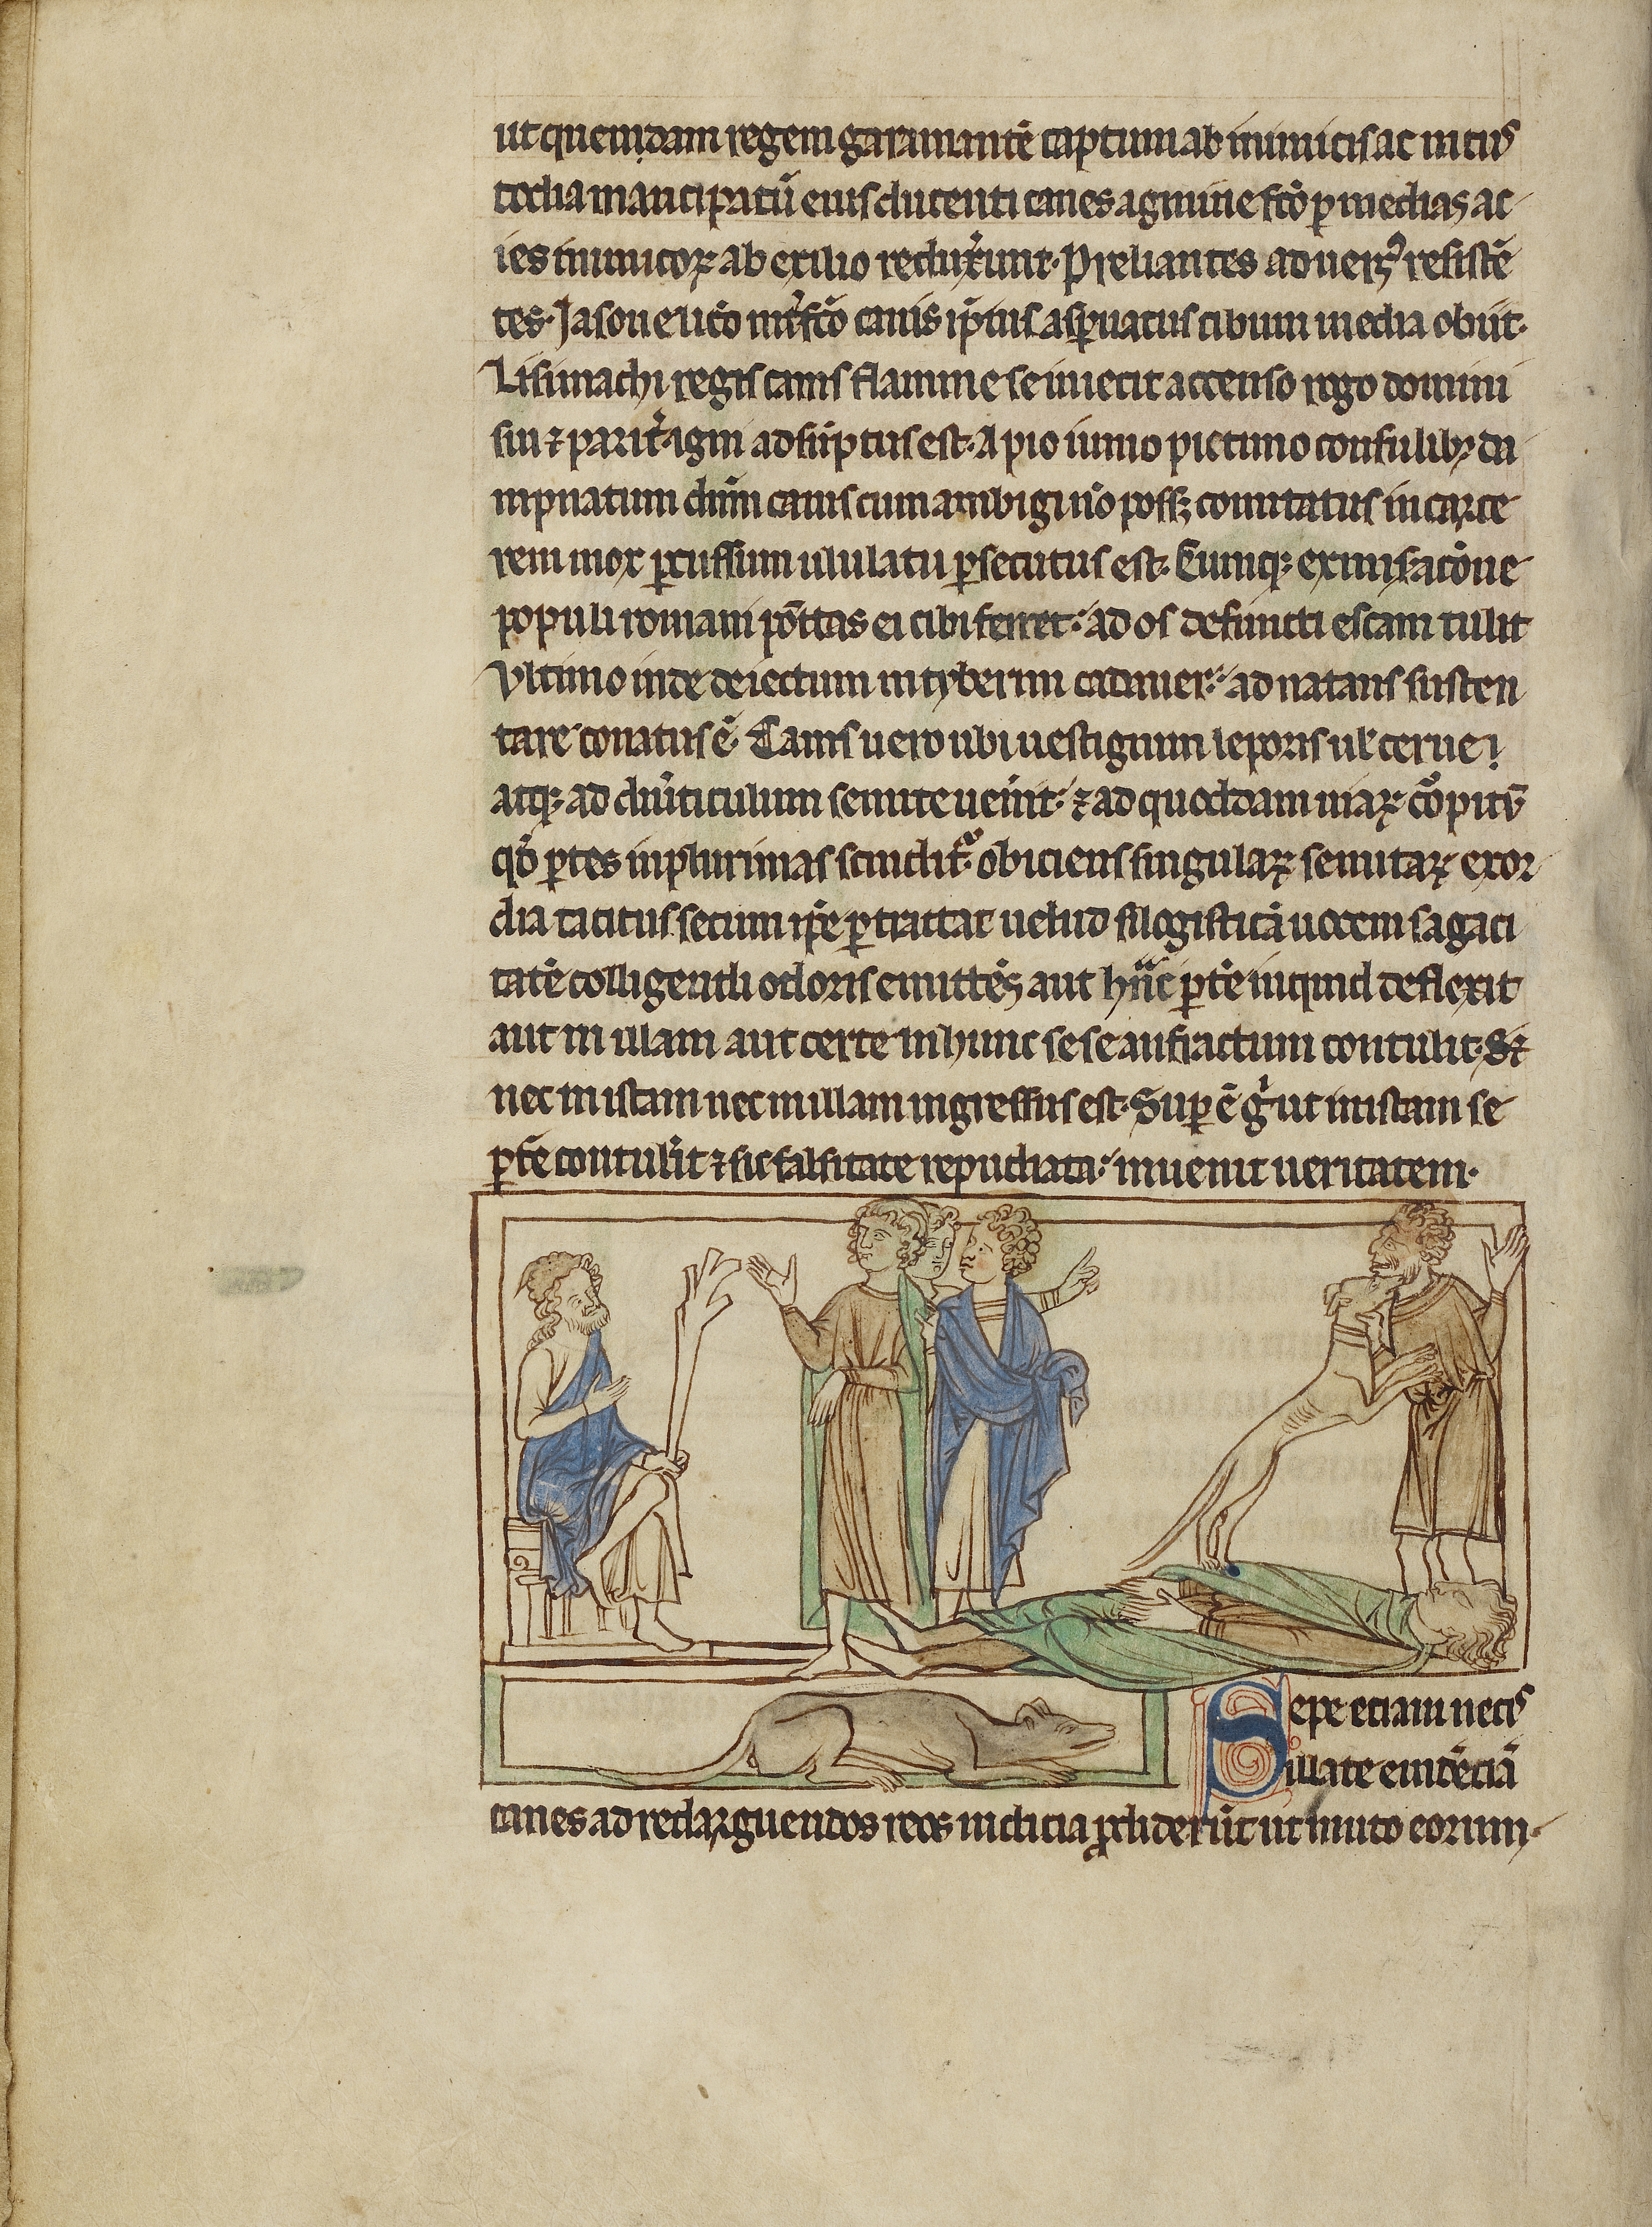 ut quemdam regem garamantē captum ab inimicis ac in cus
todia mancipatū eius ducenti canes agmine fcō p medias ac
ies inimicoꝝ ab exilio reduxerunt. Preliantes aduers' resistē
tes. Jasone licō int'fcō canis ip̄ius asp̄natus cibum inedia obiit.
Lisimachi regis canis flamme se iniecit accenso rogo domini
sui ⁊ parit' igni adsūptus est. Apio iunio pictinio consulibꝫ da
mpnatum dn̄m canis cum ambigi nō possꝫ comitatus in carce
rem mox pcussum ululatu psecutus est. Cumqꝫ ex miseracōne
populi romani pōttas ei cibi ferret. ad os defuncti escam tulit
Vltimo inde deiectum in tyberim cadauer. adnatans susten
tare conatus ē. Canis uero ubi uestigium leporis ul' cerue
atqꝫ ad diuticulum semite uenit. ⁊ ad quoddam uiaꝝ cōpitū
qd̄ ptes in plurimas scindit'. obiciens singulaꝝ semitaꝝ exor
dia tacitus secum ip̄e ptractat uelud silogisticā uocem sagaci
tatē colligendi odoris emittēs aut hanc ptē inquid deflexit
aut in illam aut certe in hunc sese anfractum contulit. S⁊
nec in istam nec in illam ingressus est. Sup ē g' ut in istam se
pte contulerit ⁊ sic falsitate repudiata. inuenit ueritatem.
Sepe etiam necis
illate euidēciā
canes ad redarguendos reos indicia pdiderūt ut muto eorum.